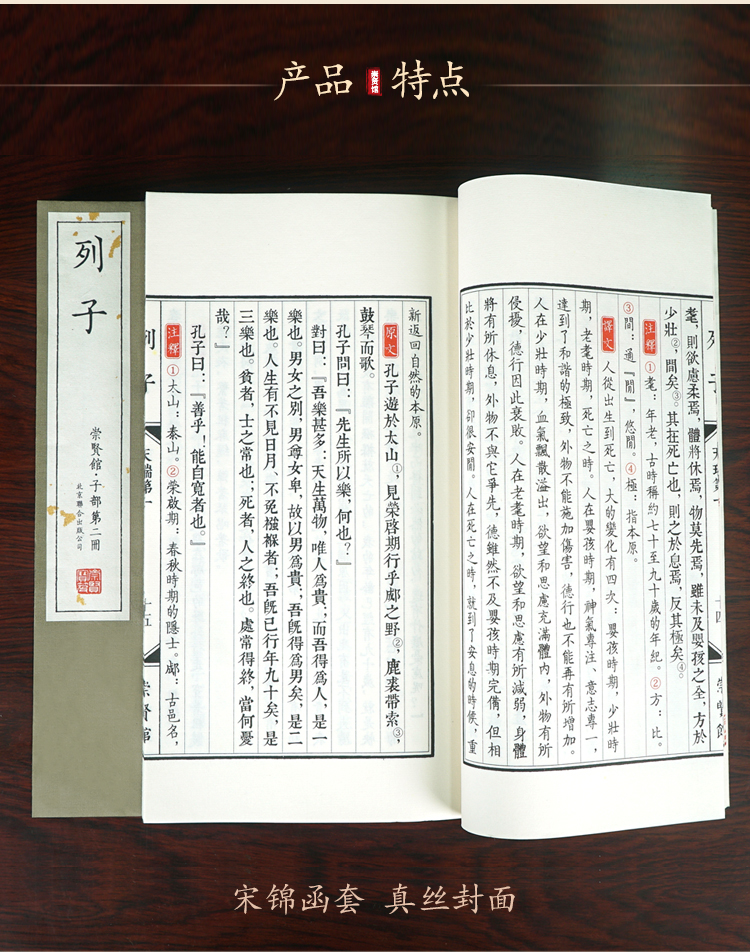 产品
崇贤馆
特点
列子
崇賢館·子部第二冊
北京聯合出版公司
列子
天瑞第一
十四
崇賢館
耄，則欲慮柔焉，體將休焉，物莫先焉，雖未及嬰孩之全，方於
少壯②，間矣③。其在死亡也，則之於息焉，反其極矣④。
注釋①耄：年老，古時稱約七十至九十歲的年紀。②方：比。
③間：通『閒』，悠閒。④極：指本原。
譯文 人從出生到死亡，大的變化有四次：嬰孩時期，少壯時
期，老耄時期，死亡之時。人在嬰孩時期，神氣專注、意志專一，
達到了和諧的極致，外物不能施加傷害，德行也不能再有所增加。
人在少壯時期，血氣飄散溢出，欲望和思慮充滿體內，外物有所
侵擾，德行因此衰敗。人在老耄時期，欲望和思慮有所減弱，身體
將有所休息，外物不與它爭先，德雖然不及嬰孩時期完備，但相
比於少壯時期，卻很安閒。人在死亡之時，就到了安息的時候，重
新返回自然的本原。
原文 孔子遊於太山①，見榮啓期行乎郕之野②，鹿裘帶索③，
鼓琴而歌。
孔子問曰：『先生所以樂，何也？』
對曰：『吾樂甚多：天生萬物，唯人爲貴；而吾得爲人，是一
樂也。男女之別，男尊女卑，故以男爲貴；吾旣得爲男矣，是二
樂也。人生有不見日月、不免襁褓者；吾旣已行年九十矣，是
三樂也。貧者，士之常也；死者，人之終也。處常得終，當何憂
哉？』
孔子曰：『善乎！能自寬者也。』
注釋①太山：泰山。②榮啟期：春秋時期的隱士。郕：古邑名，
列子
天瑞第一
十五
崇賢館
宋锦函套 真丝封面